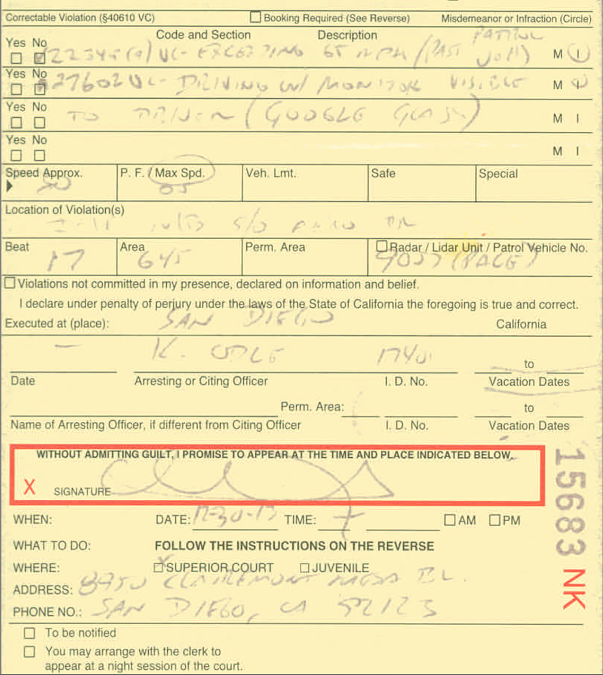 Correctable Violation (§40610 VC) Booking Required (See Reverse) Misdemeanor or Infraction (Circle)
Code and Section Description PATROL
Yes No 22349(a) VC- EXCEEDING 65 MPH (PAST M I
Yes No 27602 VC- DRIVING W/ MONITOR VISIBLE M I
Yes No TO DRIVER (GOOGLE GLASS) M I
Yes No M I
Speed Approx. P. F. / Max Spd. Veh. Lmt. Safe Special
80 65
Location of Violation(s)
S/O AERO DR
Beat Area Perm. Area Radar / Lidar Unit / Patrol Vehicle No.
17 645 (PACE)
Violations not committed in my presence, declared on information and belief.
I declare under penalty of perjury under the laws of the State of California the foregoing is true and correct.
Executed at (place): SAN DIEGO California
— K. ODLE 17401 to
Date Arresting or Citing Officer I. D. No. Vacation Dates
Perm. Area: to
Name of Arresting Officer, if different from Citing Officer I. D. No. Vacation Dates
WITHOUT ADMITTING GUILT, I PROMISE TO APPEAR AT THE TIME AND PLACE INDICATED BELOW.
X SIGNATURE
WHEN: DATE: 12-30-13 TIME: AM PM
WHAT TO DO: FOLLOW THE INSTRUCTIONS ON THE REVERSE
WHERE: SUPERIOR COURT JUVENILE
ADDRESS: 8950 CLAIREMONT MESA BL.
PHONE NO.: SAN DIEGO, CA 92123
To be notified
You may arrange with the clerk to
appear at a night session of the court.
15683 NK